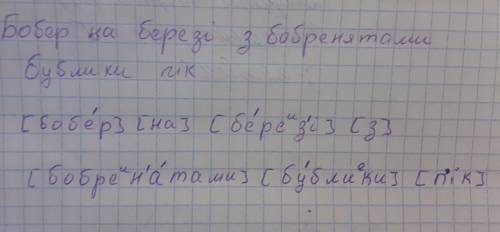 Бобер на березі з бобренятами
бублики пік
[бобе́р] [на] [бе́реиз'і] [з]
[бобреин'а́тами] [бу́блиеки] [п'ік]